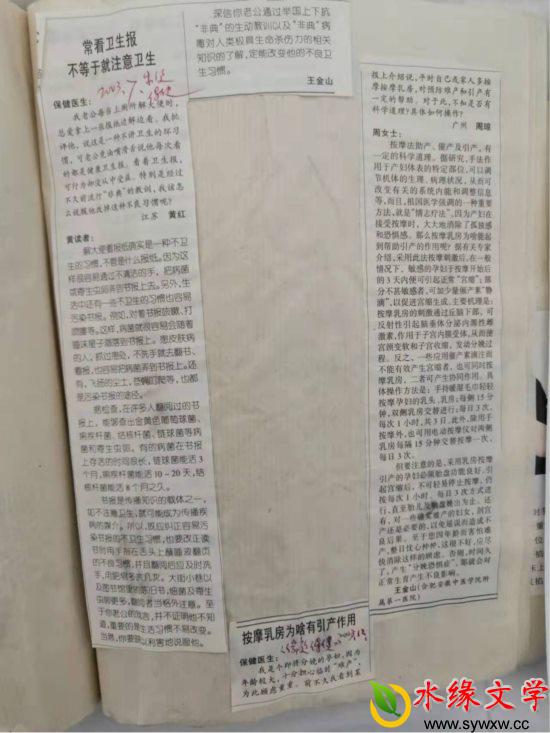 常看卫生报
不等于就注意卫生
2003.7.
保健医生：
我老公每当上厕所解大便时，
总爱拿上一张报纸边解边看。我批
评他，说这是一种不讲卫生的坏习
惯，可老公竟油嘴滑舌说他每次看
的都是健康卫生报。看看卫生报，
可行为却没从中受益。特别是经过
不久前流行“非典”的教训，我该怎
么说服他改掉这种不良习惯呢？
江苏 黄红
黄读者：
解大便看报纸确实是一种不卫
生的习惯，不管是什么报纸。因为这
样很容易通过不清洁的手，把病菌
或寄生虫卵弄到书报上去。另外，生
活中还有一些不卫生的习惯也容易
污染书报。例如，对着书报咳嗽、打
喷嚏等。这样，病菌就很容易会随着
唾沫星子溅落到书报上。患皮肤病
的人，抓过患处，不洗手就去翻书、
看报，也容易把病菌弄到书报上。还
有，飞扬的尘土，苍蝇叮爬等，也都
是污染书报的途径。
据检查，在许多人翻阅过的书
报上，能够查出金黄色葡萄球菌、
痢疾杆菌、结核杆菌、链球菌等病
菌和寄生虫卵。有的病菌在书报
上存活的时间很长，链球菌能活3
个月，痢疾杆菌能活10～20天，结
核杆菌能活8个月之久。
书报是传播知识的载体之一，
如不注意卫生，就可能成为传播疾
病的媒介。所以，既应纠正容易污
染书报的不卫生习惯，也要改正读
书时用手指在舌头上蘸唾液翻页
的不良习惯，并且翻阅后应及时洗
手，用肥皂多洗几次。大街小巷以
及图书馆里的陈旧书，细菌及寄生
虫卵更多，翻阅者当格外注意。至
于你老公的戏言，并不证明他不知
道，重要的是生活习惯不易改变。
当然，你要晓以利害地说服他。
深信你老公通过举国上下抗
“非典”的生动教训以及“非典”病
毒对人类极具生命杀伤力的相关
知识的了解，定能改变他的不良卫
生习惯。
王金山
按摩乳房为啥有引产作用
保健医生：
我是个即将分娩的孕妇，因为
年龄较大，十分担心临时“难产”，
为此顾虑重重。前不久我看到某
报上介绍说，平时自己或家人多按
摩按摩乳房，对预防难产和引产有
一定的帮助。对于此，不知是否有
科学道理？具体如何操作？
广州 周琼
周女士：
按摩法助产、催产及引产，有
一定的科学道理。据研究，手法作
用于产妇体表的特定部位，可以调
节机体的生理、病理状况，从而可
改变有关的系统内能和调整信息
等，而且，祖国医学强调的一种重要
方法，就是“情志疗法”，因为产妇在
接受按摩时，大大地消除了孤独感
和恐惧感。那么按摩乳房为啥能起
到帮助引产的作用呢？据有关专家
介绍，采用此法按摩刺激后，在一般
情况下，敏感的孕妇于按摩开始后
的3天内便可引起正常“宫缩”；部
分不甚敏感者，可加少量催产素“静
滴”，以促进宫缩生成。主要机理是：
按摩乳房的刺激通过丘脑下部，可
反射性引起脑垂体分泌内源性雌
激素，作用于子宫内膜受体，从而使
宫颈变软和子宫收缩，发动分娩过
程。反之，一些应用催产素滴注而
不能有效产生宫缩者，也可同时按
摩乳房，二者可产生协同作用。具
体操作方法是：手持暖湿毛巾轻轻
按摩孕妇的乳头、乳房；每侧15分
钟，双侧乳房交替进行；每日3次、
每次1小时，共3日。此外，除用手
按摩外，也可用电动按摩仪对两侧
乳房每隔15分钟交替按摩一次，
每日3次。
但要注意的是，采用乳房按摩
引产的孕妇必须胎盘功能良好，引
起宫缩后，不可轻易停止按摩，仍
按每次1小时、每日3次方式进
行，直至胎儿及胎盘娩出为止。还
有，对一些确实难产的妇女，剖宫
产还是必要的，以免延误而造成不
良后果。至于您因年龄而害怕难
产，整日忧心忡忡，这很不好，应尽
快消除这样的顾虑。否则，时间久
了，产生“分娩恐惧症”，那就会对
正常生育产生不良影响。
王金山（合肥安徽中医学院附
属第一医院）
水缘文学
www.sywxw.com